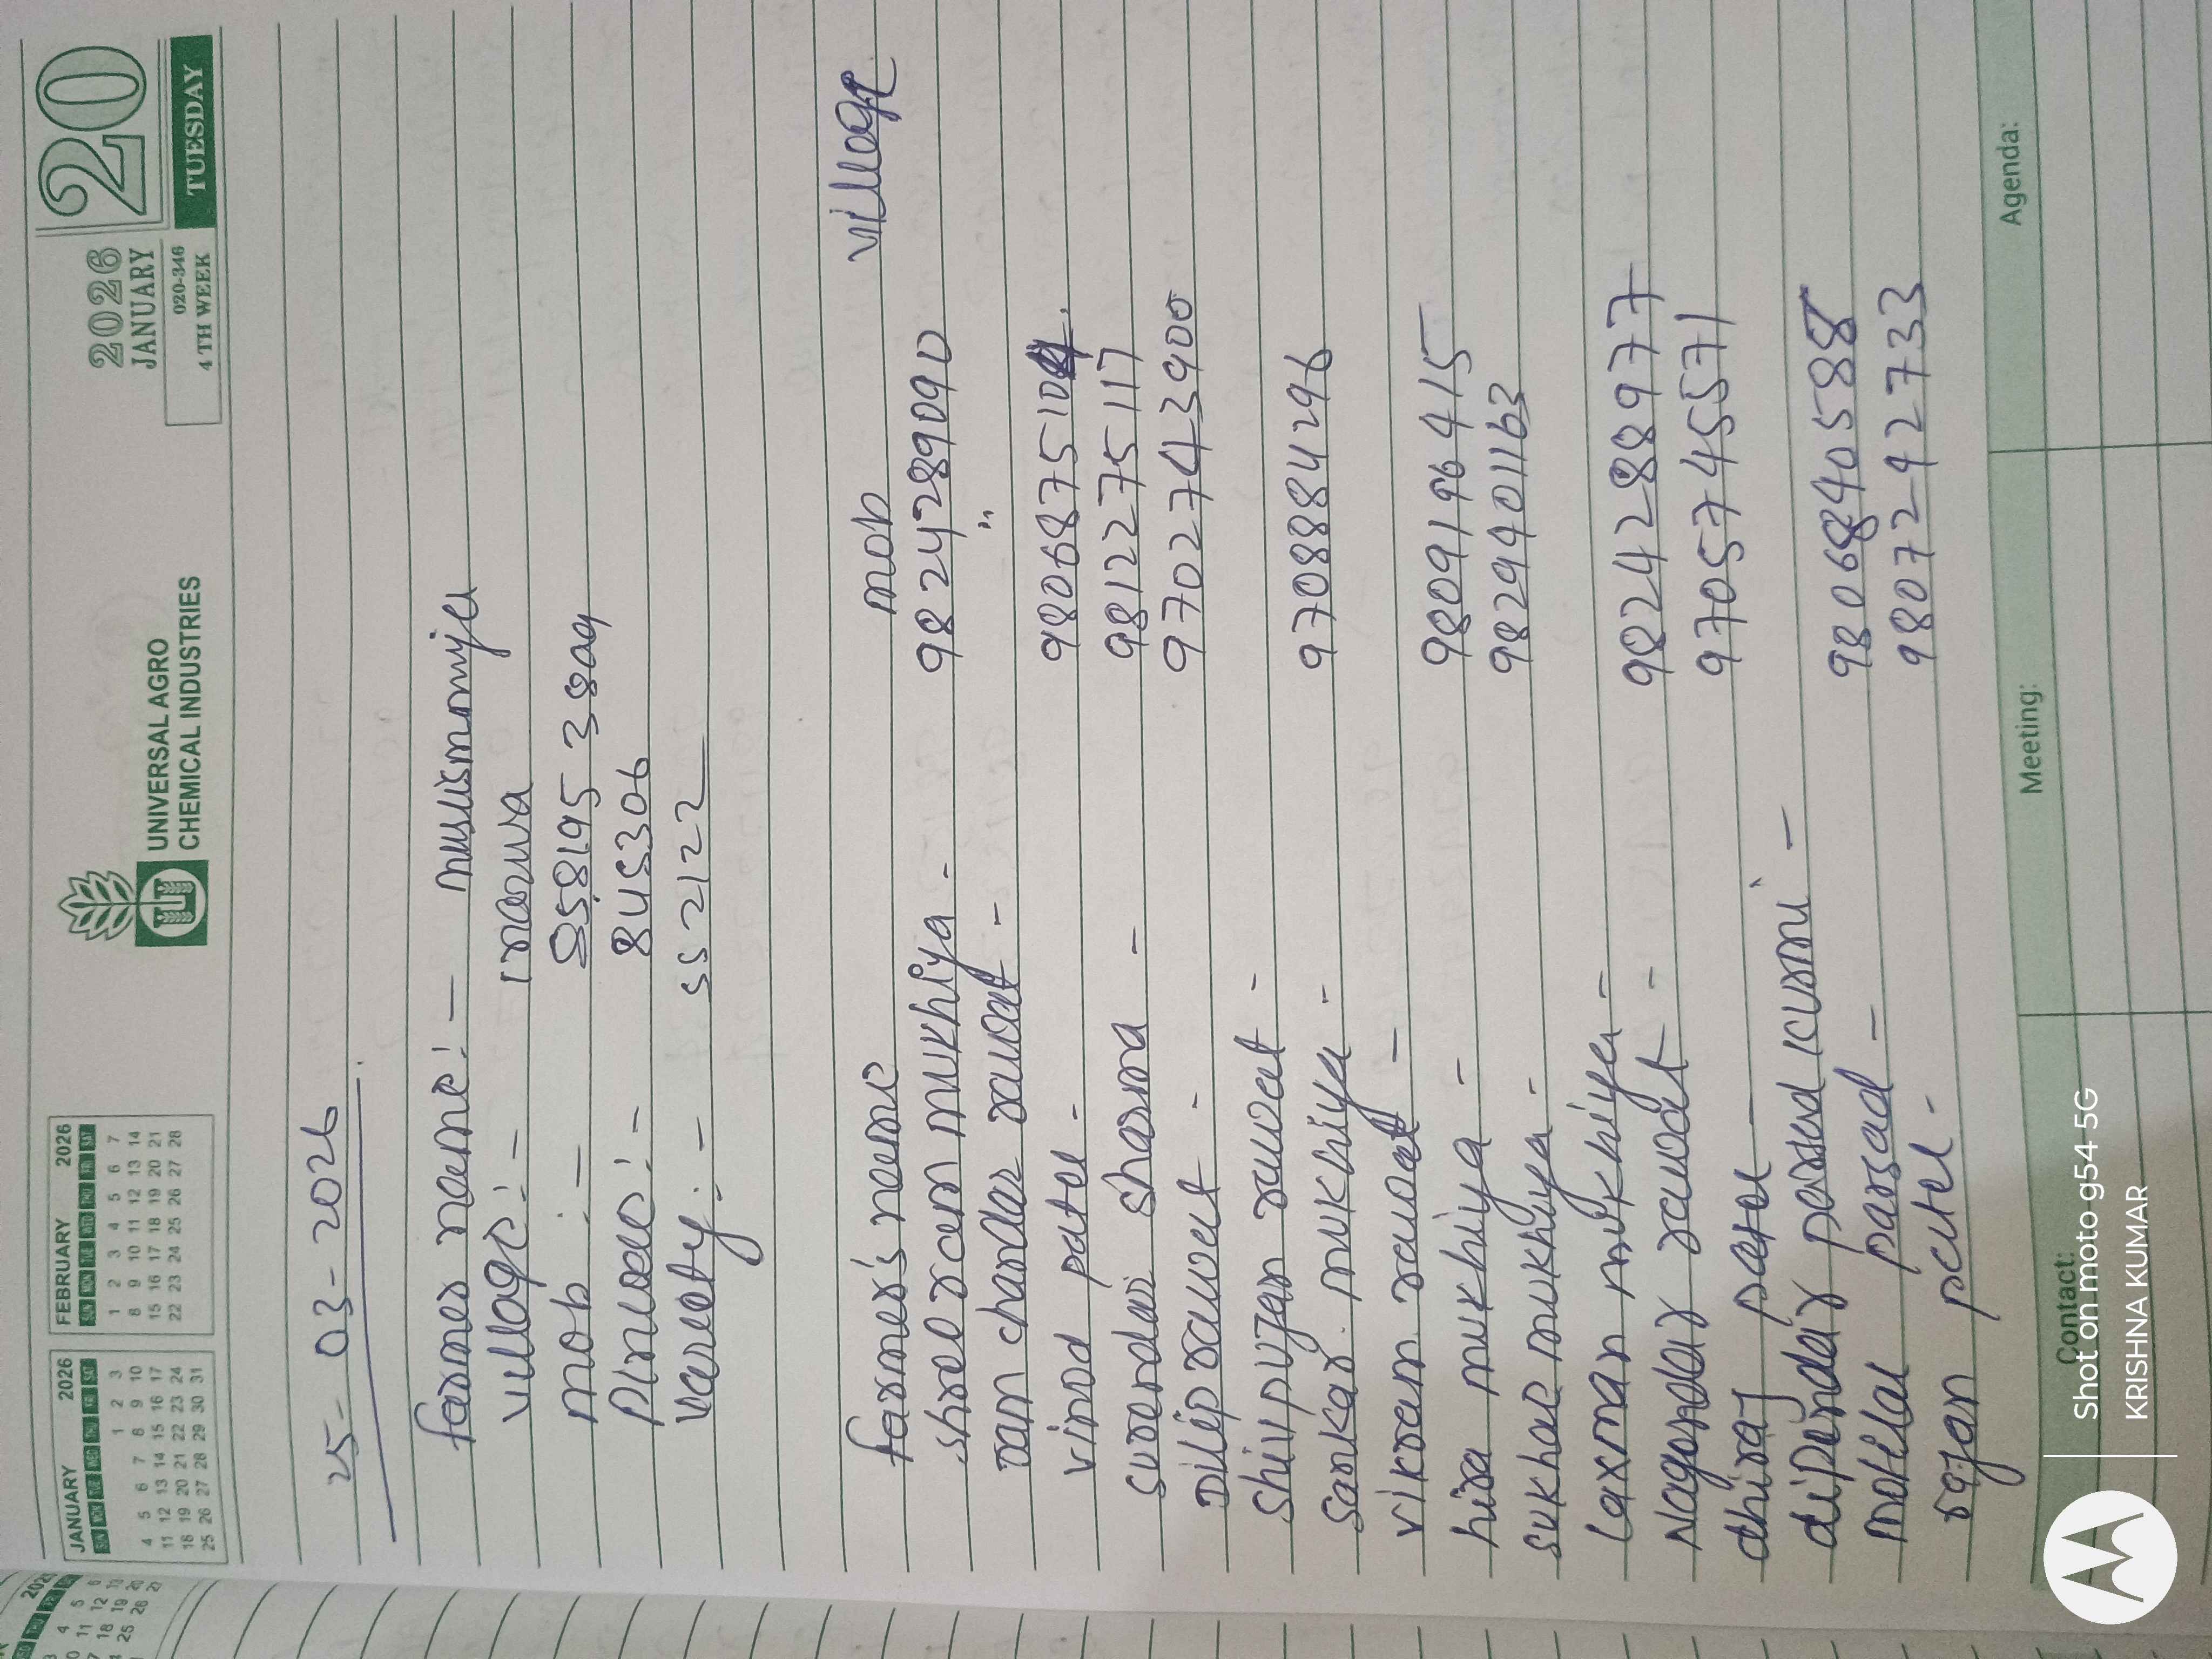 JANUARY 2026
SUN MON TUE WED THU FRI SAT
1 2 3
4 5 6 7 8 9 10
11 12 13 14 15 16 17
18 19 20 21 22 23 24
25 26 27 28 29 30 31
FEBRUARY 2026
SUN MON TUE WED THU FRI SAT
1 2 3 4 5 6 7
8 9 10 11 12 13 14
15 16 17 18 19 20 21
22 23 24 25 26 27 28
UNIVERSAL AGRO
CHEMICAL INDUSTRIES
2026
JANUARY
20
020-346
4 TH WEEK
TUESDAY
25-03-2026
farmer name:-
village:-
mob :-
845306
Variety:- SS 2122
farmer's name mob village
shree ram mukhiya - 9824289090
ram chandar rauat - "
vinod patel - 98068751
surendar sharma - 9812275117
Dilip rauat - 9702743900
shiv pujan rauat -
sankar mukhiya - 9708884296
vikram rauat -
hira mukhiya - 9809196415
sukhar mukhiya - 9829401163
laxman mukhiya -
Nagendar rauat - 9824288977
dhiraj patel - 9705745571
dipendar parsad kurmi -
motilal parsad - 9806840588
rajan patel - 9807292733
Contact:
Meeting:
Agenda:
Shot on moto g54 5G
KRISHNA KUMAR